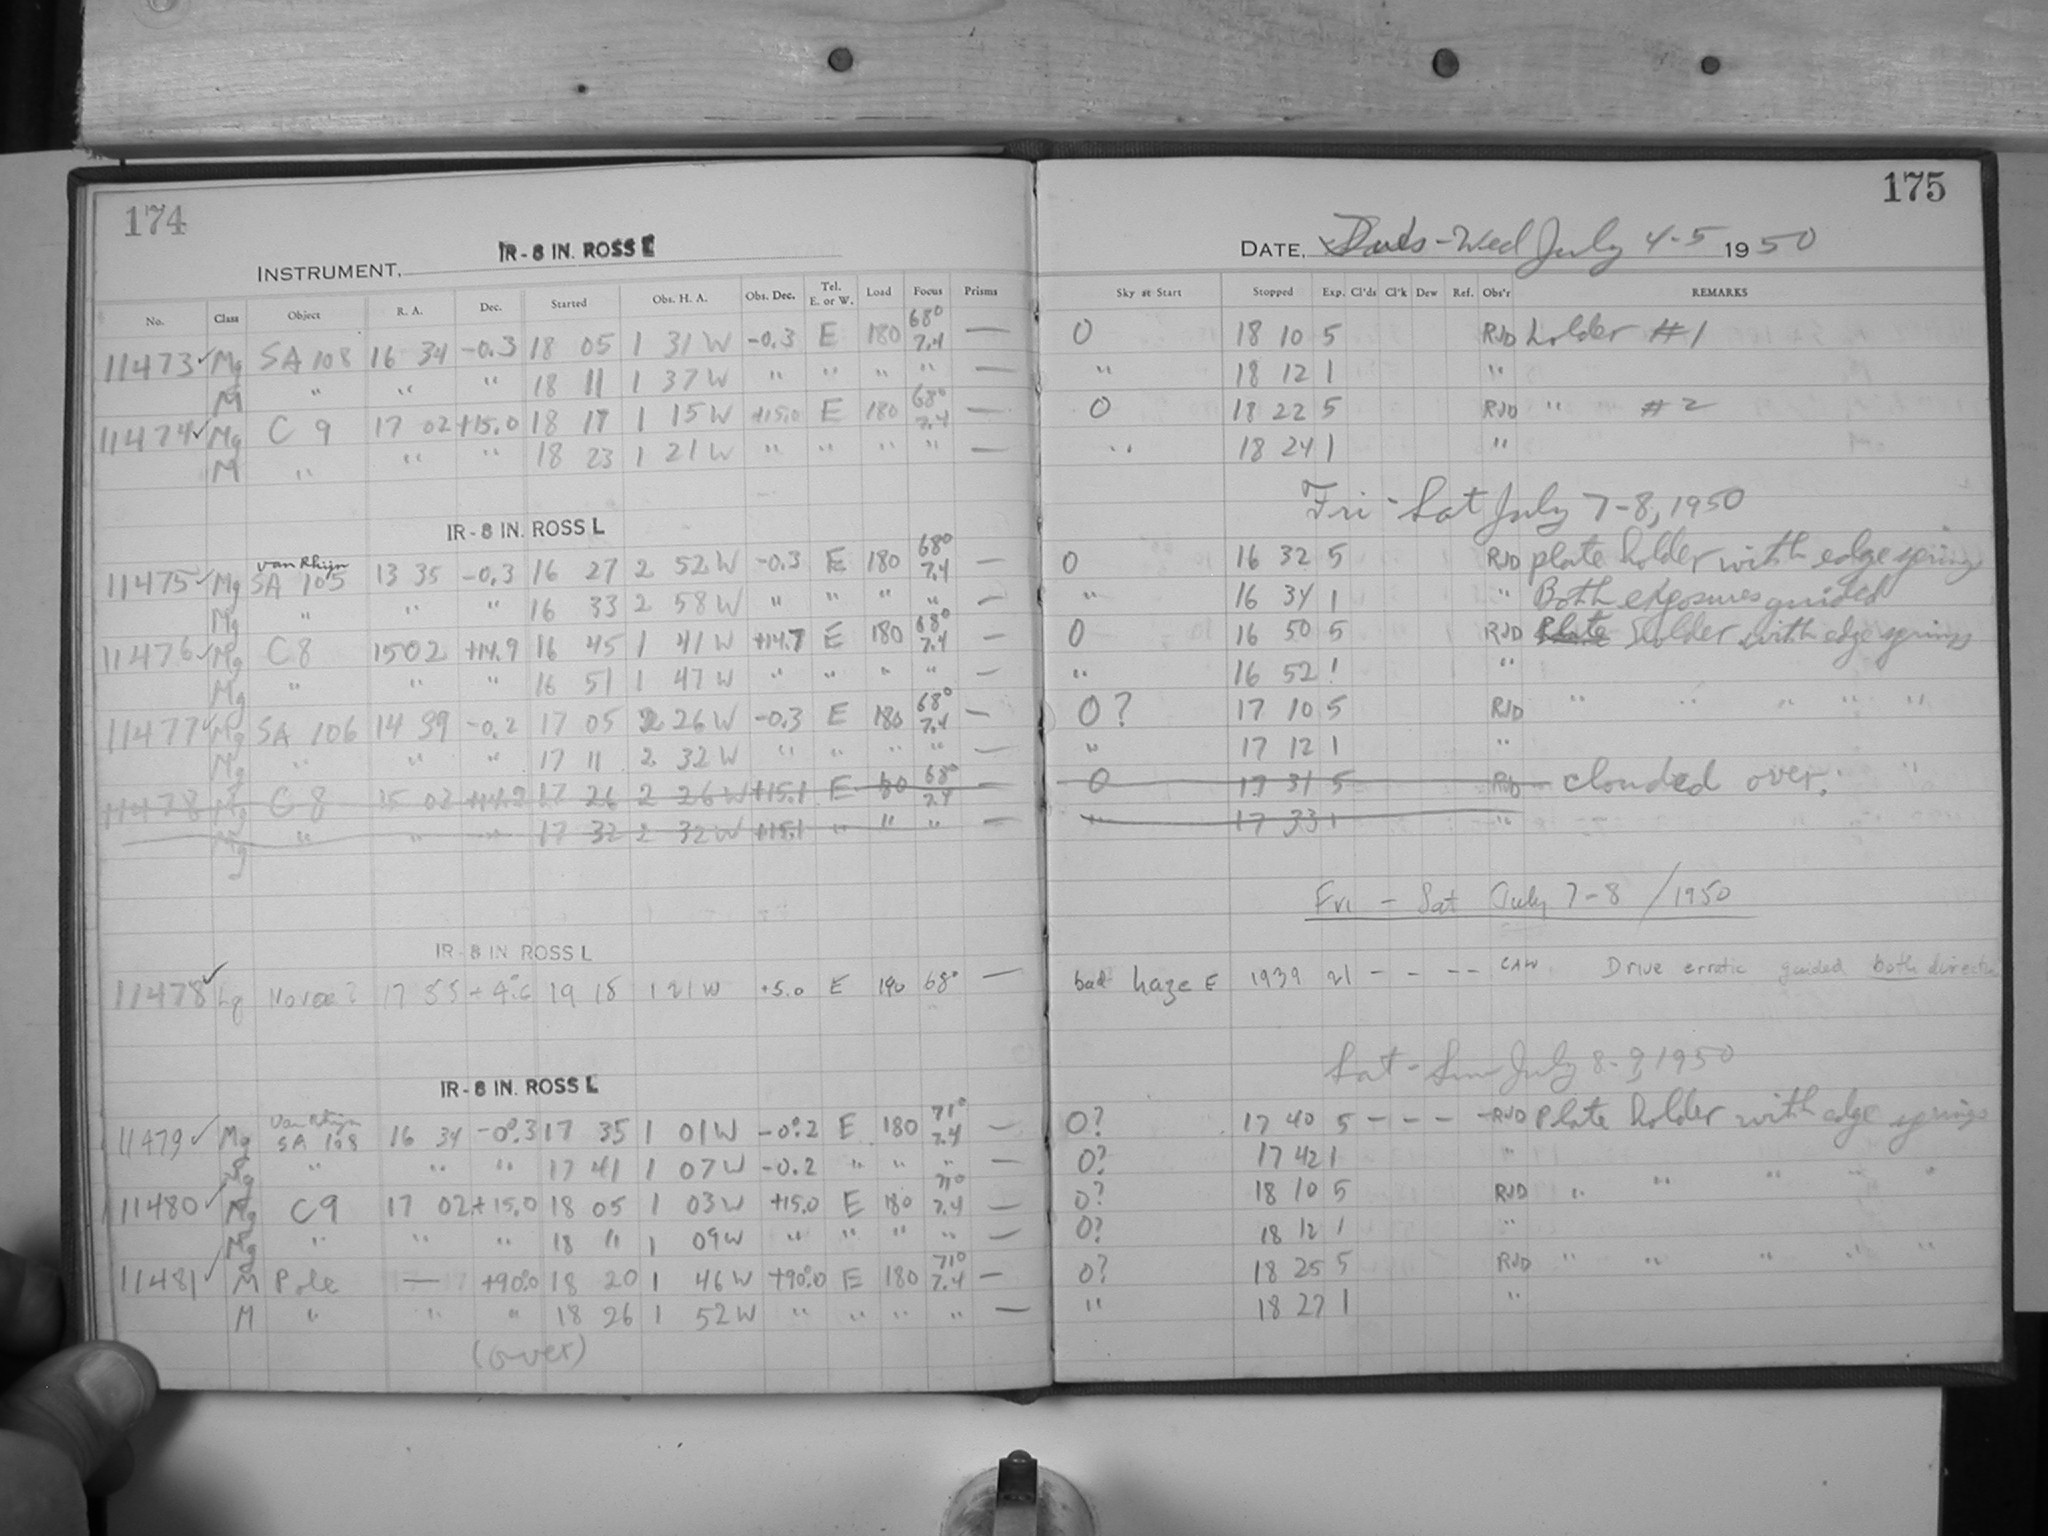 174
IR-8 IN. ROSS L
INSTRUMENT,
No. Class Object R. A. Dec. Started Obs. H. A. Obs. Dec. Tel. E. or W. Load Focus Prisms
11473 ✓ Mg SA 108 16 34 -0.3 18 05 1 31 W -0.3 E 180 68° 7.4 —
M " " " 18 11 1 37 W " " " " —
11474 ✓ Mg C 9 17 02 +15.0 18 17 1 15 W +15.0 E 180 68° 7.4 —
M " " " 18 23 1 21 W " " " " —
IR-8 IN. ROSS L
11475 ✓ Mg van Rhijn SA 105 13 35 -0.3 16 27 2 52 W -0.3 E 180 68° 7.4 —
Mg " " " 16 33 2 58 W " " " " —
11476 ✓ Mg C 8 15 02 +14.9 16 45 1 41 W +14.7 E 180 68° 7.4 —
Mg " " " 16 51 1 47 W " " " " —
11477 ✓ Mg SA 106 14 39 -0.2 17 05 2 26 W -0.3 E 180 68° 7.4 —
Mg " " " 17 11 2 32 W " " " " —
11478 Mg C 8 15 02 +14.9 17 26 2 26 W +15.1 E 80 68° 7.4 —
Mg " " " 17 32 2 32 W +15.1 " " " —
IR-8 IN ROSS L
11478 ✓ Lg Novae? 17 55 19 18 1 21 W +5.0 E 190 68° —
IR-8 IN. ROSS L
11479 ✓ Mg van Rhijn SA 108 16 34 -0°.3 17 35 1 01 W -0°.2 E 180 71° 7.4 —
Mg " " " 17 41 1 07 W -0.2 " " " —
11480 ✓ Mg C 9 17 02 +15.0 18 05 1 03 W +15.0 E 180 71° 7.4 —
Mg " " " 18 11 1 09 W " " " " —
11481 ✓ M Pole — +90°.0 18 20 1 46 W +90°.0 E 180 71° 7.4 —
M " " " 18 26 1 52 W " " " " —
(over)
175
DATE, - Wed July 4-5 1950
Sky at Start Stopped Exp. Cl'ds Cl'k Dew Ref. Obs'r REMARKS
0 18 10 5 RJD holder #1
" 18 12 1 "
0 18 22 5 RJD " #2
" 18 24 1 "
Fri - Sat July 7-8, 1950
0 16 32 5 RJD plate holder with edge springs
" 16 34 1 " Both exposures guided
0 16 50 5 RJD Plate holder with edge springs
" 16 52 1 "
0? 17 10 5 RJD " " " " "
" 17 12 1 "
0 17 31 5 RJD — clouded over. "
" 17 33 1 "
Fri - Sat July 7-8 / 1950
bad haze E 19 39 21 - - - - CAW Drive erratic guided both directi
Sat - Sun July 8-9, 1950
0? 17 40 5 - - - - RJD Plate holder with edge springs
0? 17 42 1 "
0? 18 10 5 RJD " " " " "
0? 18 12 1 "
0? 18 25 5 RJD " " " " "
" 18 27 1 "